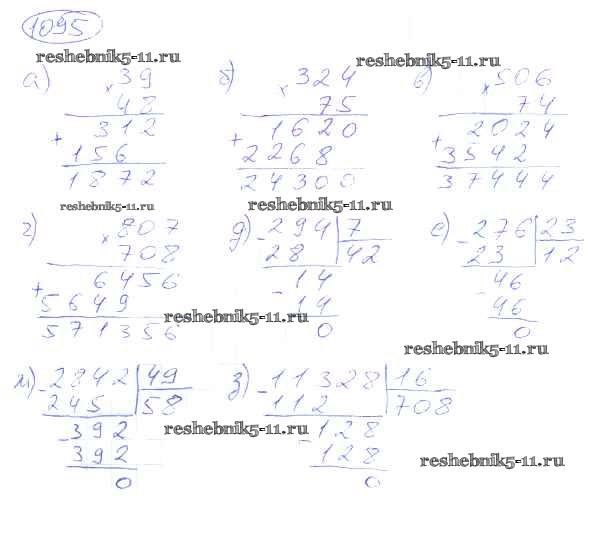 1095
reshebnik5-11.ru
reshebnik5-11.ru
а) × 39
48
+ 312
156
1872
б) × 324
75
+ 1620
2268
24300
в) × 506
74
+ 2024
3542
37444
reshebnik5-11.ru
reshebnik5-11.ru
г) × 807
708
+ 6456
5649
571356
д) - 294 | 7
28 | 42
- 14
14
0
е) - 276 | 23
23 | 12
- 46
46
0
reshebnik5-11.ru
reshebnik5-11.ru
ж) - 2842 | 49
245 | 58
- 392
392
0
з) - 11328 | 16
112 | 708
- 128
128
0
reshebnik5-11.ru
reshebnik5-11.ru